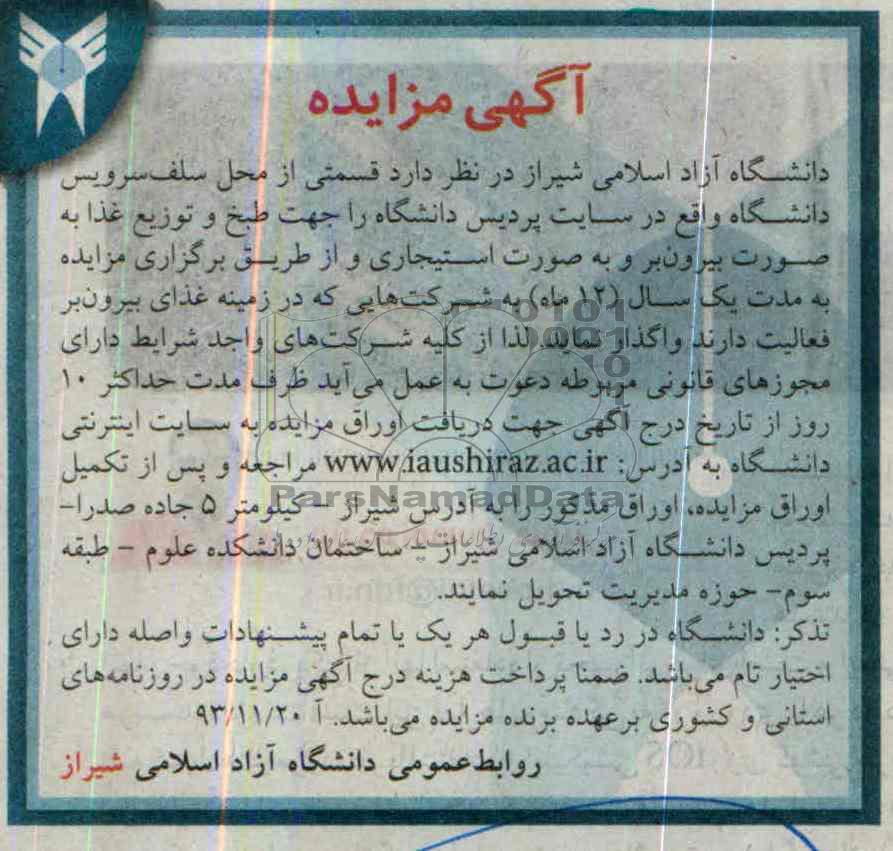 آگهی مزایده
دانشگاه آزاد اسلامی شیراز در نظر دارد قسمتی از محل سلف‌سرویس
دانشگاه واقع در سایت پردیس دانشگاه را جهت طبخ و توزیع غذا به
صورت بیرون‌بر و به صورت استیجاری و از طریق برگزاری مزایده
به مدت یک سال (۱۲ ماه) به شرکت‌هایی که در زمینه غذای بیرون‌بر
فعالیت دارند واگذار نماید. لذا از کلیه شرکت‌های واجد شرایط دارای
مجوزهای قانونی مربوطه دعوت به عمل می‌آید ظرف مدت حداکثر ۱۰
روز از تاریخ درج آگهی جهت دریافت اوراق مزایده به سایت اینترنتی
دانشگاه به آدرس: www.iaushiraz.ac.ir مراجعه و پس از تکمیل
اوراق مزایده، اوراق مذکور را به آدرس شیراز – کیلومتر ۵ جاده صدرا–
پردیس دانشگاه آزاد اسلامی شیراز – ساختمان دانشکده علوم – طبقه
سوم– حوزه مدیریت تحویل نمایند.
تذکر: دانشگاه در رد یا قبول هر یک یا تمام پیشنهادات واصله دارای
اختیار تام می‌باشد. ضمنا پرداخت هزینه درج آگهی مزایده در روزنامه‌های
استانی و کشوری برعهده برنده مزایده می‌باشد. آ ۹۳/۱۱/۲۰
روابط‌عمومی دانشگاه آزاد اسلامی شیراز
ParsNamadData